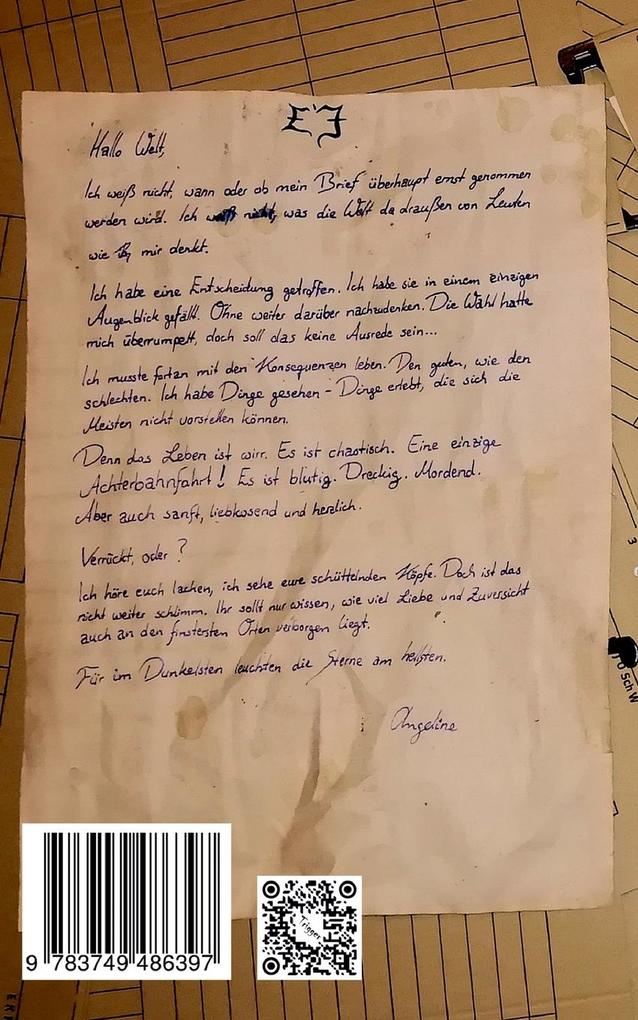 Hallo Welt,
Ich weiß nicht, wann oder ob mein Brief überhaupt ernst genommen
werden wird. Ich weiß nicht, was die Welt da draußen von Leuten
wie mir denkt.
Ich habe eine Entscheidung getroffen. Ich habe sie in einem einzigen
Augenblick gefällt. Ohne weiter darüber nachzudenken. Die Wahl hatte
mich überrumpelt, doch soll das keine Ausrede sein...
Ich musste fortan mit den Konsequenzen leben. Den guten, wie den
schlechten. Ich habe Dinge gesehen - Dinge erlebt, die sich die
Meisten nicht vorstellen können.
Denn das Leben ist wirr. Es ist chaotisch. Eine einzige
Achterbahnfahrt! Es ist blutig. Dreckig. Mordend.
Aber auch sanft, liebkosend und herzlich.
Verrückt, oder?
Ich höre euch lachen, ich sehe eure schüttelnden Köpfe. Doch ist das
nicht weiter schlimm. Ihr sollt nur wissen, wie viel Liebe und Zuversicht
auch an den finstersten Orten verborgen liegt.
Für im Dunkelsten leuchten die Sterne am hellsten.
Angeline
9 783749 486397
Trigger